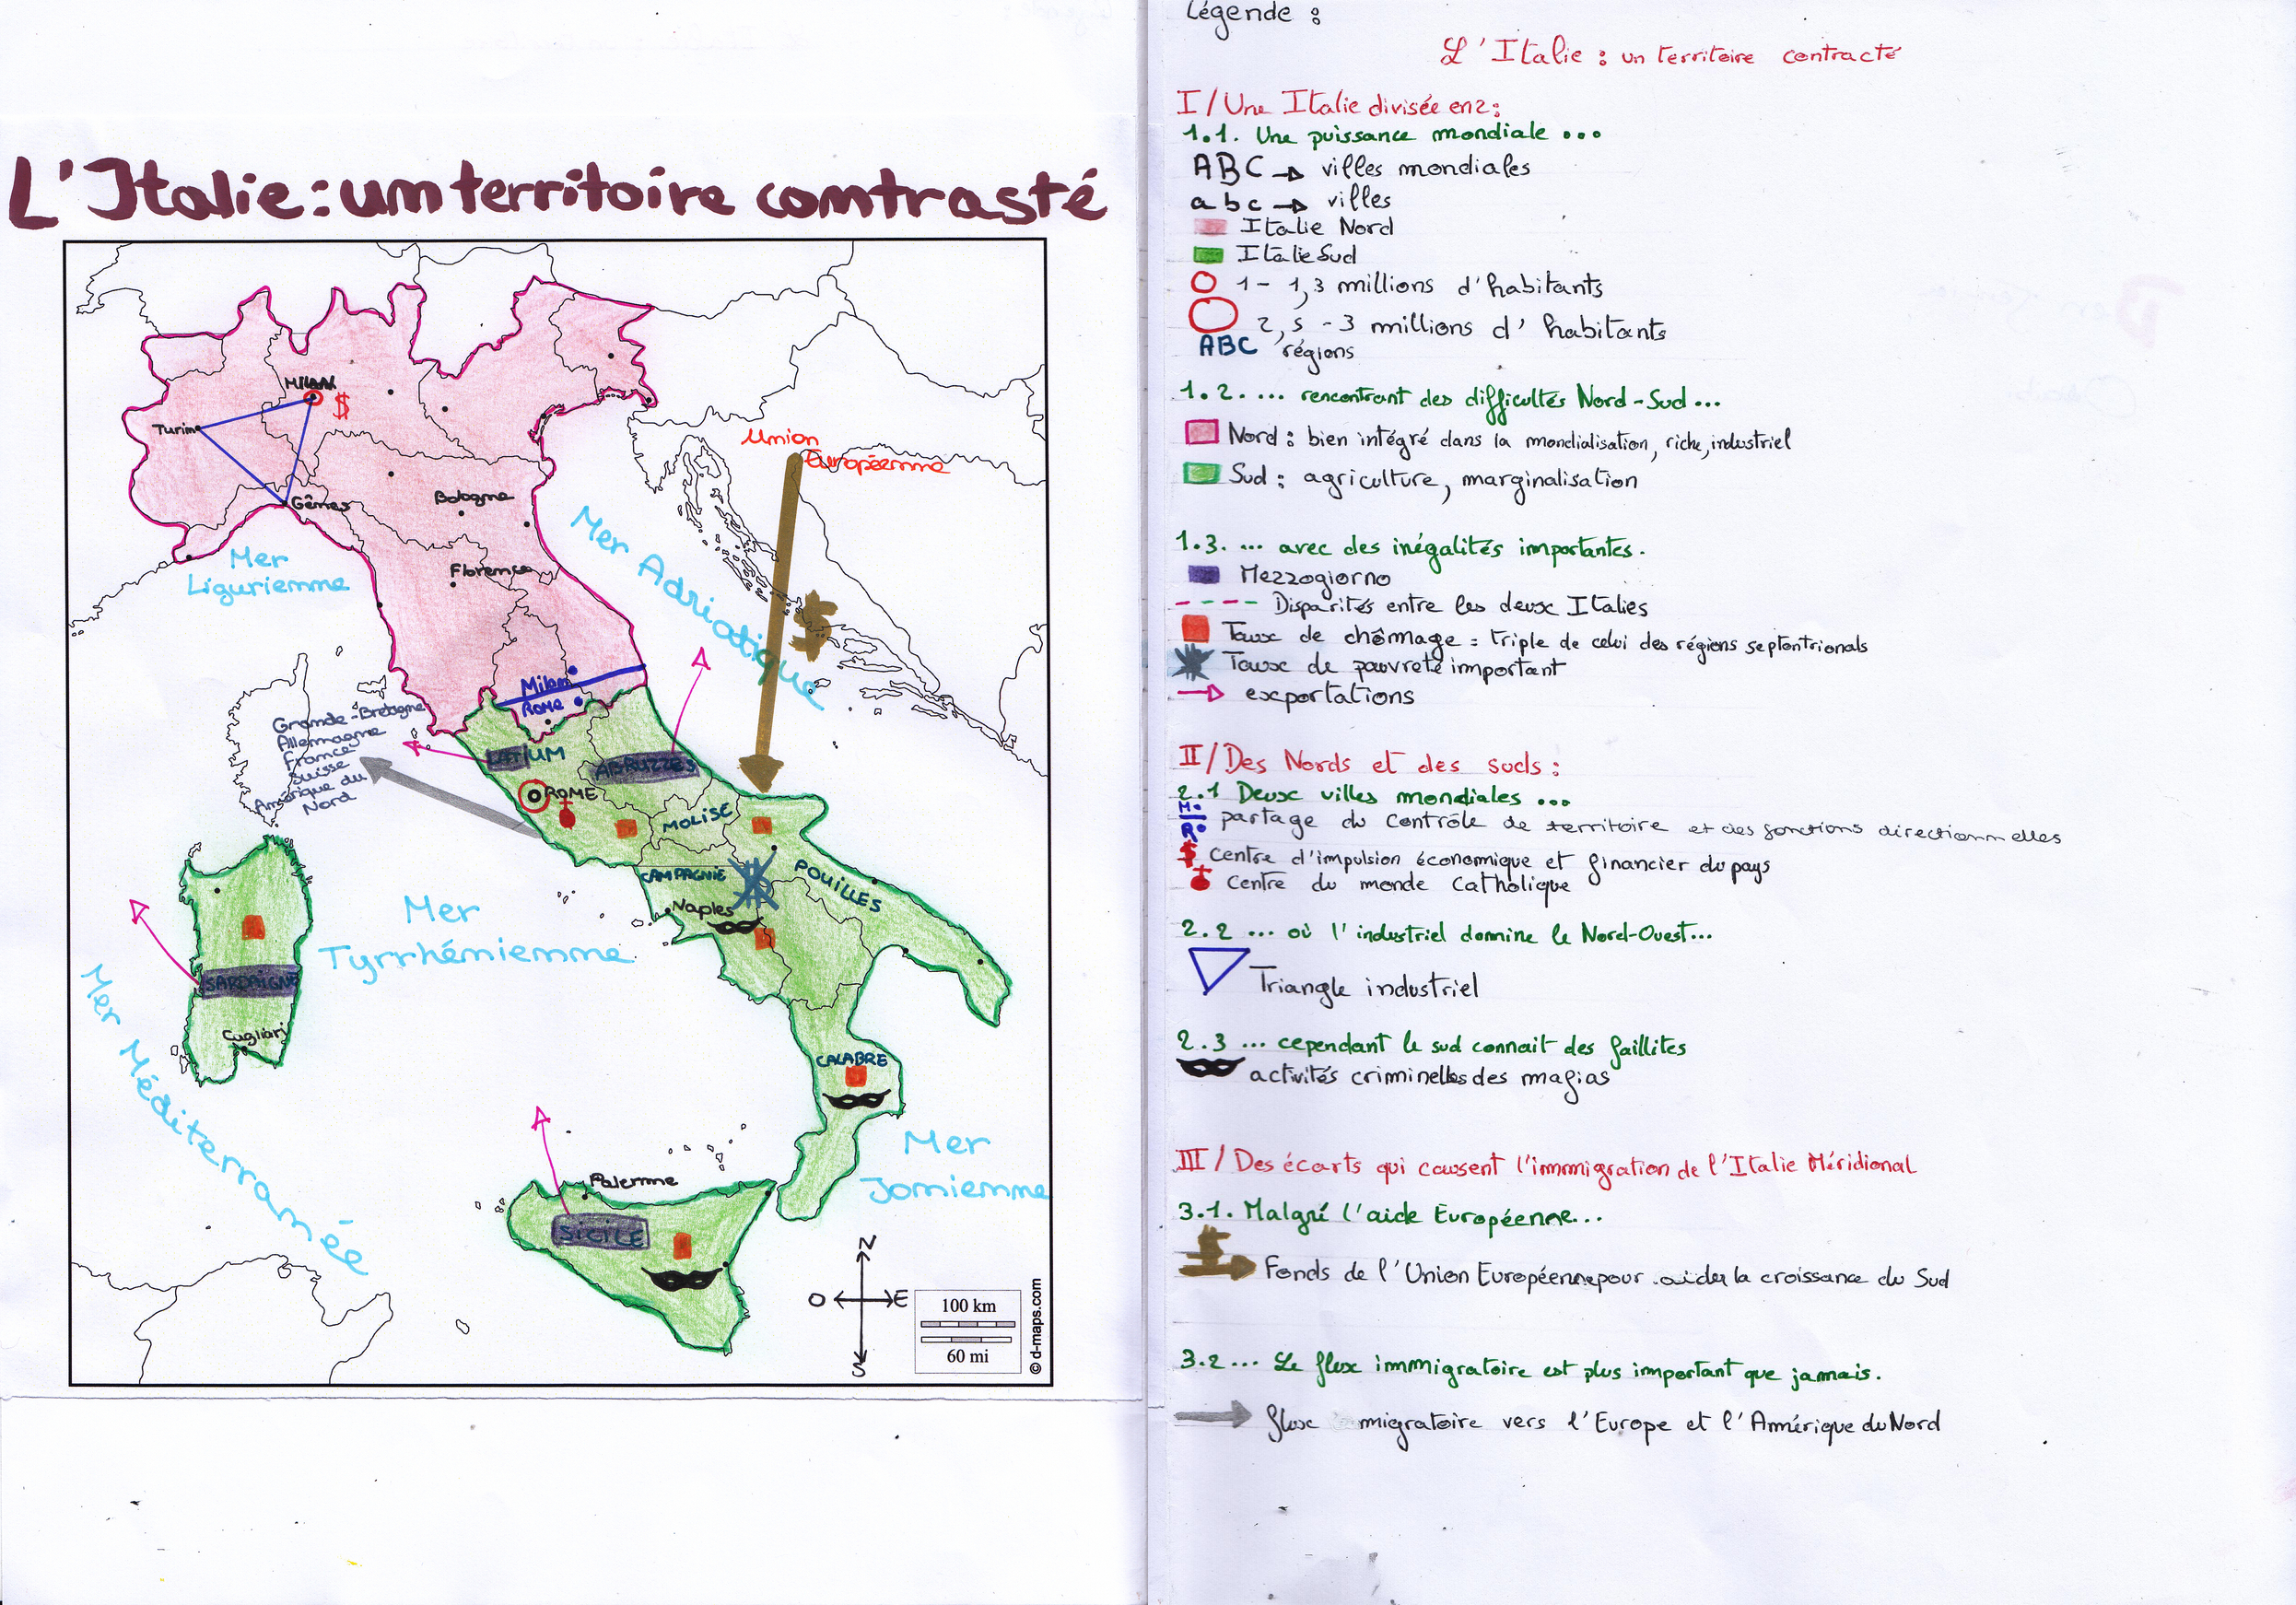 L'Italie : un territoire contrasté
MILAN
$
Turin
Gênes
Bologne
Florence
Union
Européenne
Mer
Ligurienne
Mer Adriatique
Milan
ROME
Grande-Bretagne
Allemagne
France
Suisse
Amérique du
Nord
LATIUM
ABRUZZES
ROME
MOLISE
CAMPAGNIE
POUILLES
Naples
Mer
Tyrrhénienne
SARDAIGNE
Cagliari
Mer Méditerranée
CALABRE
Mer
Ionienne
Palerme
SICILE
N
O E
S
100 km
60 mi
© d-maps.com
Légende :
L'Italie : un territoire contracté
I/ Une Italie divisée en 2 :
1.1. Une puissance mondiale ...
ABC → villes mondiales
abc → villes
Italie Nord
Italie Sud
1 - 1,3 millions d'habitants
2,5 - 3 millions d'habitants
ABC régions
1.2. ... rencontrant des difficultés Nord-Sud...
Nord : bien intégré dans la mondialisation, riche, industriel
Sud : agriculture, marginalisation
1.3. ... avec des inégalités importantes.
Mezzogiorno
Disparités entre les deux Italies
Taux de chômage = triple de celui des régions septentrionals
Taux de pauvreté important
exportations
II/ Des Nords et des suds :
2.1 Deux villes mondiales ...
M•
R• partage du contrôle de territoire et des fonctions directionnelles
$ centre d'impulsion économique et financier du pays
centre du monde catholique
2.2 ... où l'industriel domine le Nord-Ouest...
Triangle industriel
2.3 ... cependant le sud connait des faillites
activités criminelles des mafias
III/ Des écarts qui causent l'immigration de l'Italie Méridional
3.1. Malgré l'aide Européenne...
Fonds de l'Union Européenne pour aider la croissance du Sud
3.2 ... Le flux immigratoire est plus important que jamais.
flux migratoire vers l'Europe et l'Amérique du Nord